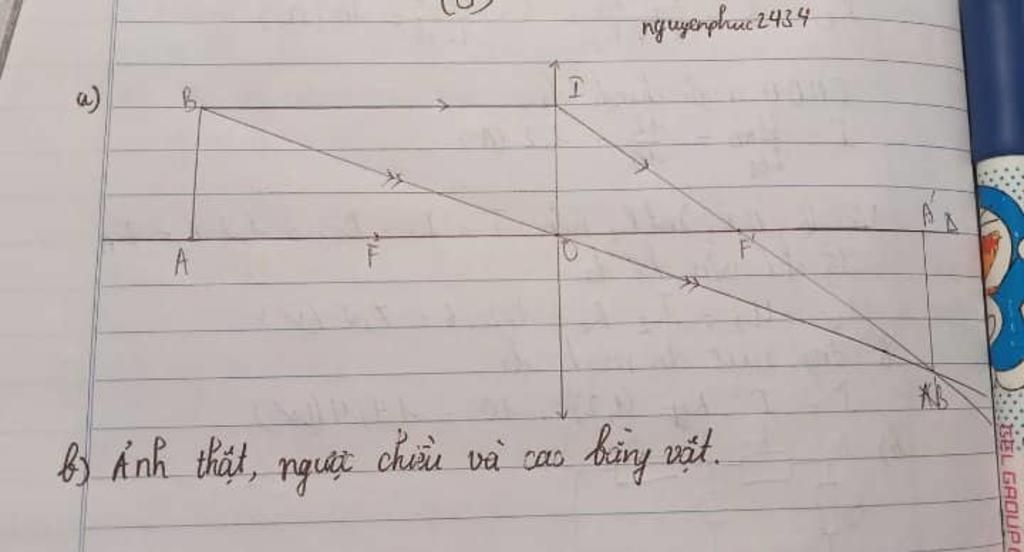 (U)
nguyenphuc2434
a)
B
I
A' Δ
A F O F'
B
b) Ảnh thật, ngược chiều và cao bằng vật.
GEL GROUP